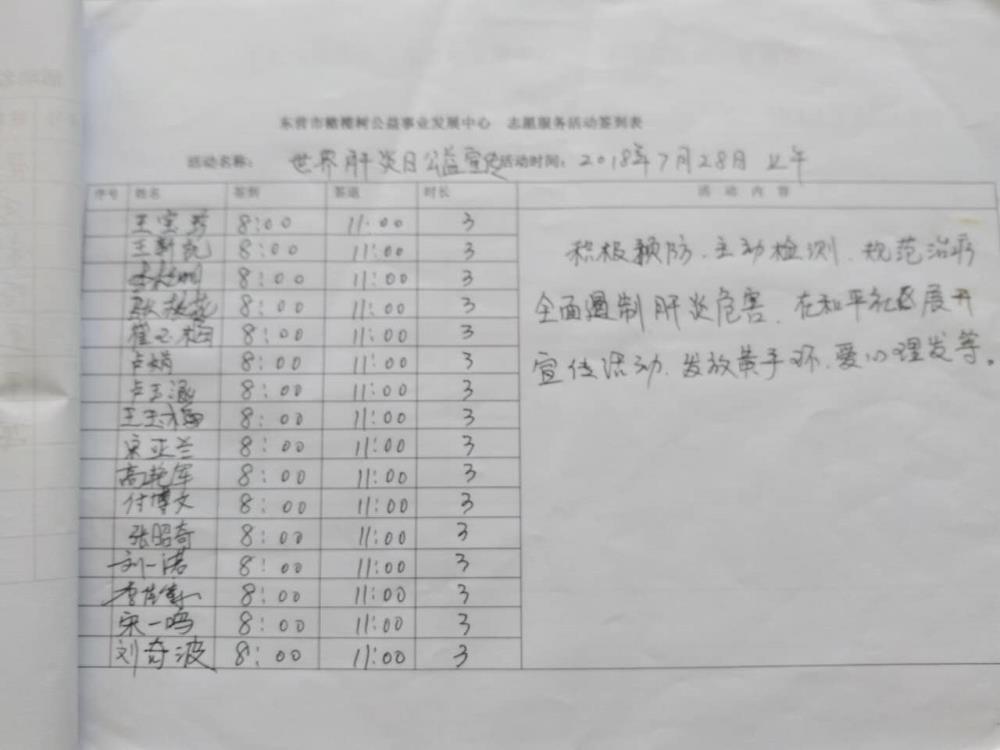 东营市橄榄树公益事业发展中心 志愿服务活动签到表
活动名称: 世界肝炎日公益宣传 活动时间: 2018年7月28日 上午
序号 姓名 签到 签退 时长 活动内容
王宝琴 8:00 11:00 3
王新苑 8:00 11:00 3
8:00 11:00 3
张 8:00 11:00 3
崔玉梅 8:00 11:00 3
卢娟 8:00 11:00 3
卢玉涵 8:00 11:00 3
王玉梅 8:00 11:00 3
宋亚兰 8:00 11:00 3
高艳军 8:00 11:00 3
付博文 8:00 11:00 3
张昭奇 8:00 11:00 3
刘一诺 8:00 11:00 3
李 8:00 11:00 3
宋一鸣 8:00 11:00 3
刘奇波 8:00 11:00 3
积极预防、主动检测、规范治疗
全面遏制肝炎危害、在和平社区展开
宣传活动、发放黄手环、爱心理发等。